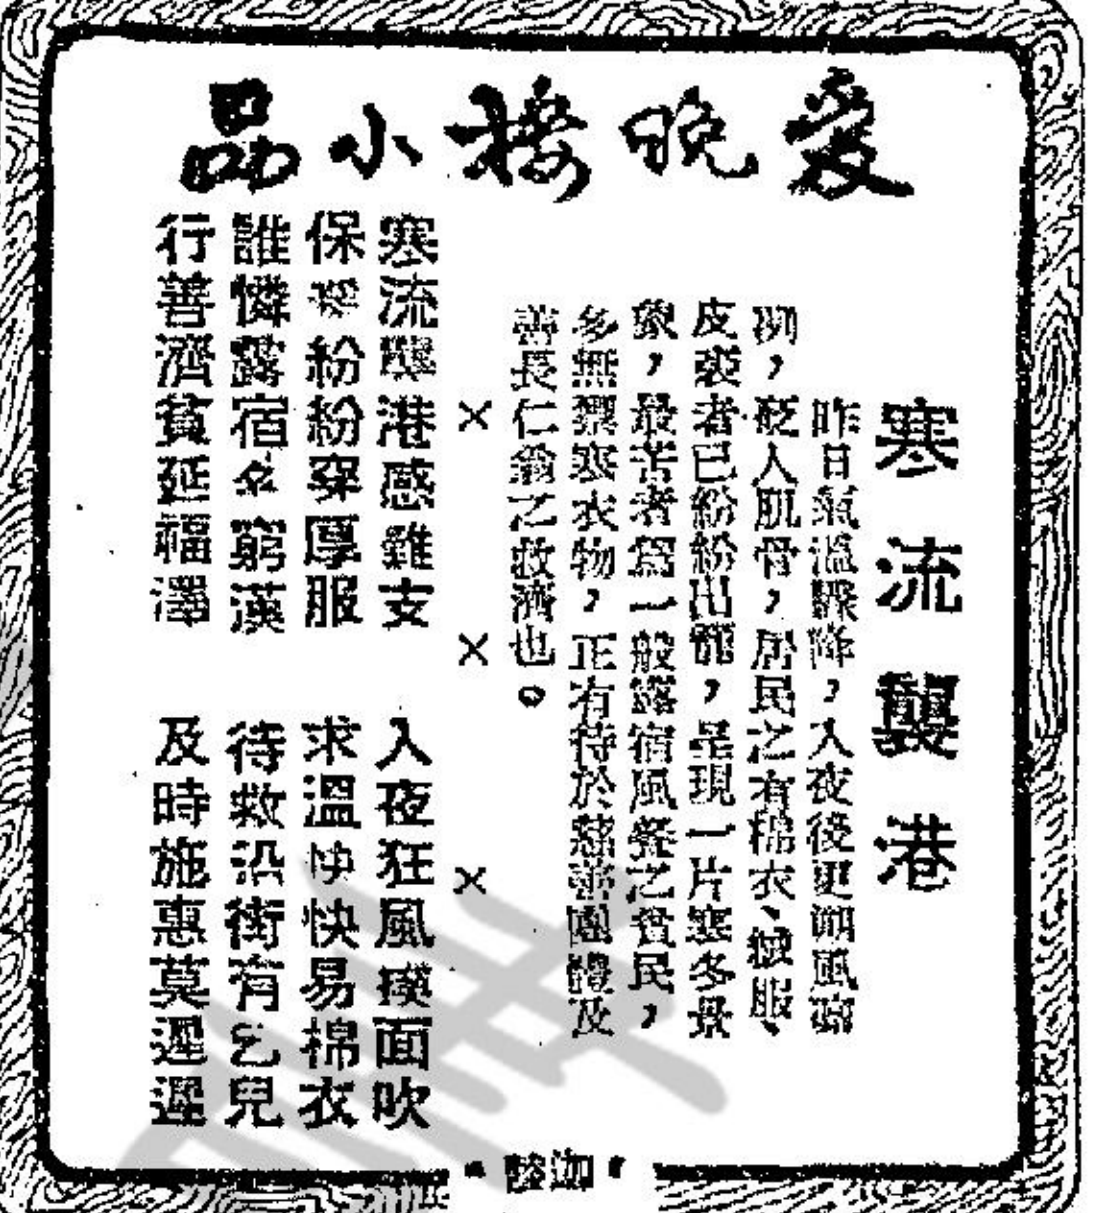 愛晚樓小品
寒流襲港
昨日氣溫驟降，入夜後更朔風凜
冽，砭人肌骨，居民之有棉衣、絨服、
皮裘者已紛紛出籠，呈現一片寒冬景
象，最苦者爲一般露宿風餐之貧民，
多無禦寒衣物，正有待於慈善團體及
善長仁翁之救濟也。
× × ×
寒流襲港感難支 入夜狂風撲面吹
保暖紛紛穿厚服 求溫快快易棉衣
誰憐露宿多窮漢 待救沿街有乞兒
行善濟貧延福澤 及時施惠莫遲遲